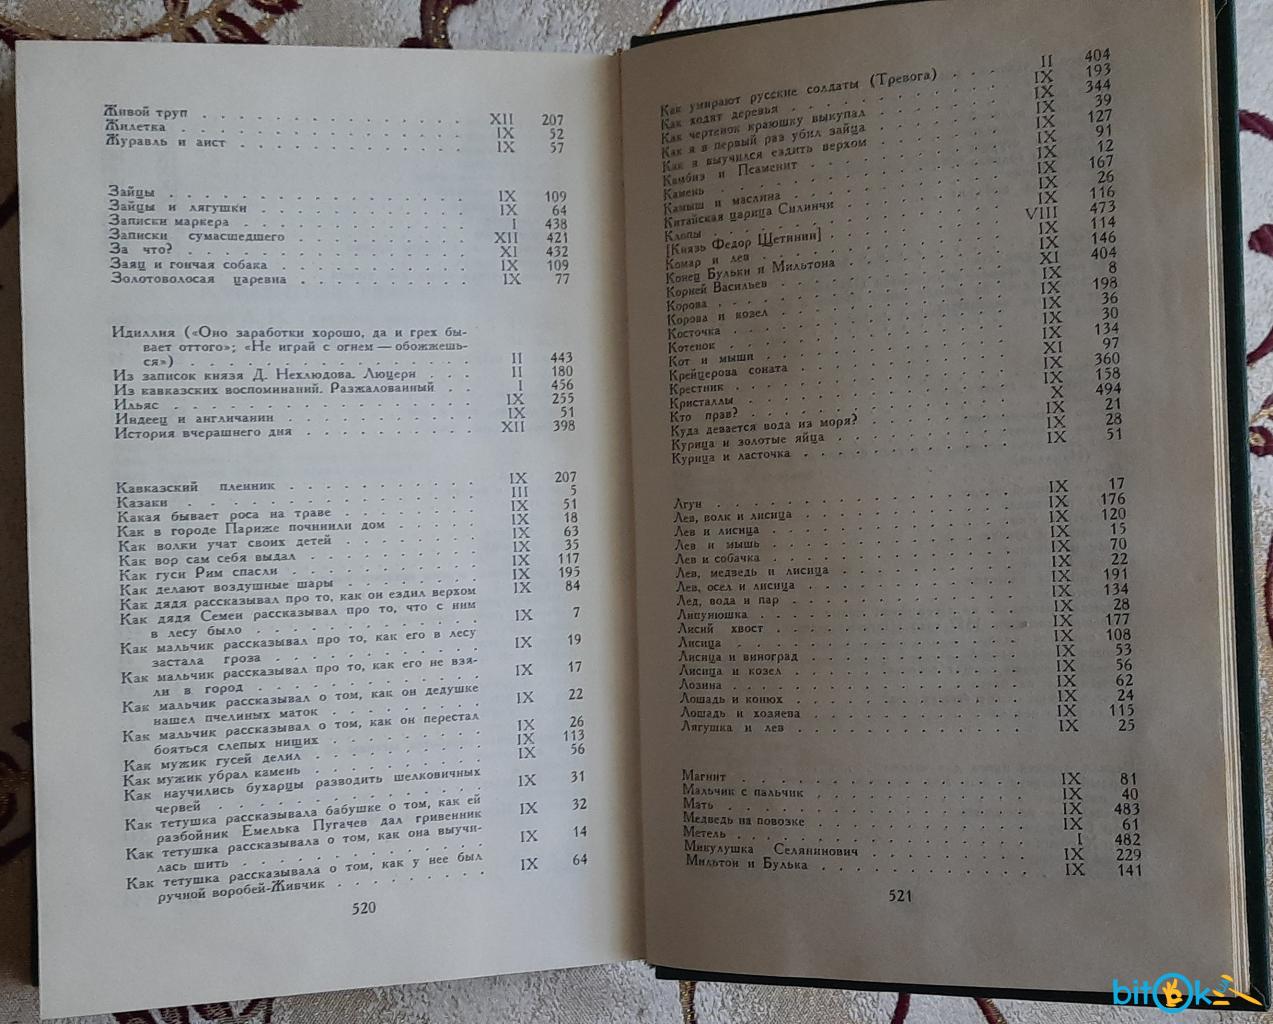 Живой труп . . . . . . . . . . . . . . . . . . XII 207
Жилетка . . . . . . . . . . . . . . . . . . IX 52
Журавль и аист . . . . . . . . . . . . . . . . IX 57
Зайцы . . . . . . . . . . . . . . . . . . IX 109
Зайцы и лягушки . . . . . . . . . . . . . . . IX 64
Записки маркера . . . . . . . . . . . . . . . I 438
Записки сумасшедшего . . . . . . . . . . . . . XII 421
За что? . . . . . . . . . . . . . . . . . . XI 432
Заяц и гончая собака . . . . . . . . . . . . . IX 109
Золотоволосая царевна . . . . . . . . . . . . . IX 77
Идиллия («Оно заработки хорошо, да и грех бы-
вает оттого»; «Не играй с огнем — обожжешь-
ся») . . . . . . . . . . . . . . . . . . II 443
Из записок князя Д. Нехлюдова. Люцерн . . . II 180
Из кавказских воспоминаний. Разжалованный . . I 456
Ильяс . . . . . . . . . . . . . . . . . . IX 255
Индеец и англичанин . . . . . . . . . . . . . IX 51
История вчерашнего дня . . . . . . . . . . . . XII 398
Кавказский пленник . . . . . . . . . . . . . IX 207
Казаки . . . . . . . . . . . . . . . . . . III 5
Какая бывает роса на траве . . . . . . . . . . IX 51
Как в городе Париже починили дом . . . . . . IX 18
Как волки учат своих детей . . . . . . . . . . IX 63
Как вор сам себя выдал . . . . . . . . . . . . IX 35
Как гуси Рим спасли . . . . . . . . . . . . . IX 117
Как делают воздушные шары . . . . . . . . . . IX 195
Как дядя рассказывал про то, как он ездил верхом IX 84
Как дядя Семен рассказывал про то, что с ним
в лесу было . . . . . . . . . . . . . . . IX 7
Как мальчик рассказывал про то, как его в лесу
застала гроза . . . . . . . . . . . . . . IX 19
Как мальчик рассказывал про то, как его не взя-
ли в город . . . . . . . . . . . . . . . IX 17
Как мальчик рассказывал о том, как он дедушке
нашел пчелиных маток . . . . . . . . . . . IX 22
Как мальчик рассказывал о том, как он перестал
бояться слепых нищих . . . . . . . . . . . IX 26
Как мужик гусей делил . . . . . . . . . . . . IX 113
Как мужик убрал камень . . . . . . . . . . . IX 56
Как научились бухарцы разводить шелковичных
червей . . . . . . . . . . . . . . . . . IX 31
Как тетушка рассказывала бабушке о том, как ей
разбойник Емелька Пугачев дал гривенник IX 32
Как тетушка рассказывала о том, как она выучи-
лась шить . . . . . . . . . . . . . . . . IX 14
Как тетушка рассказывала о том, как у нее был
ручной воробей-Живчик . . . . . . . . . . IX 64
520
Как умирают русские солдаты (Тревога) . . . II 404
Как ходят деревья . . . . . . . . . . . . . . IX 193
Как чертенок краюшку выкупал . . . . . . . . IX 344
Как я в первый раз убил зайца . . . . . . . . IX 39
Как я выучился ездить верхом . . . . . . . . IX 127
Камбиз и Псаменит . . . . . . . . . . . . . IX 91
Камень . . . . . . . . . . . . . . . . . . IX 12
Камыш и маслина . . . . . . . . . . . . . . IX 167
Китайская царица Силинчи . . . . . . . . . . IX 26
Клопы . . . . . . . . . . . . . . . . . . IX 116
[Князь Федор Щетинин] . . . . . . . . . . . VIII 473
Комар и лев . . . . . . . . . . . . . . . . IX 114
Конец Бульки и Мильтона . . . . . . . . . . IX 146
Корней Васильев . . . . . . . . . . . . . . XI 404
Корова . . . . . . . . . . . . . . . . . . IX 8
Корова и козел . . . . . . . . . . . . . . . IX 198
Косточка . . . . . . . . . . . . . . . . . IX 36
Котенок . . . . . . . . . . . . . . . . . . IX 30
Кот и мыши . . . . . . . . . . . . . . . . IX 134
Крейцерова соната . . . . . . . . . . . . . XI 97
Крестник . . . . . . . . . . . . . . . . . IX 360
Кристаллы . . . . . . . . . . . . . . . . . IX 158
Кто прав? . . . . . . . . . . . . . . . . . X 494
Куда девается вода из моря? . . . . . . . . . IX 21
Курица и золотые яйца . . . . . . . . . . . IX 28
Курица и ласточка . . . . . . . . . . . . . IX 51
Лгун . . . . . . . . . . . . . . . . . . . IX 17
Лев, волк и лисица . . . . . . . . . . . . . IX 176
Лев и лисица . . . . . . . . . . . . . . . IX 120
Лев и мышь . . . . . . . . . . . . . . . . IX 15
Лев и собачка . . . . . . . . . . . . . . . IX 70
Лев, медведь и лисица . . . . . . . . . . . IX 22
Лев, осел и лисица . . . . . . . . . . . . . IX 191
Лед, вода и пар . . . . . . . . . . . . . . IX 134
Липунюшка . . . . . . . . . . . . . . . . IX 28
Лисий хвост . . . . . . . . . . . . . . . . IX 177
Лисица . . . . . . . . . . . . . . . . . . IX 108
Лисица и виноград . . . . . . . . . . . . . IX 53
Лисица и козел . . . . . . . . . . . . . . . IX 56
Лозина . . . . . . . . . . . . . . . . . . IX 62
Лошадь и конюх . . . . . . . . . . . . . . IX 24
Лошадь и хозяева . . . . . . . . . . . . . . IX 115
Лягушка и лев . . . . . . . . . . . . . . . IX 25
Магнит . . . . . . . . . . . . . . . . . . IX 81
Мальчик с пальчик . . . . . . . . . . . . . IX 40
Мать . . . . . . . . . . . . . . . . . . . IX 483
Медведь на повозке . . . . . . . . . . . . . IX 61
Метель . . . . . . . . . . . . . . . . . . I 482
Микулушка Селянинович . . . . . . . . . . . IX 229
Мильтон и Булька . . . . . . . . . . . . . . IX 141
521
bitok